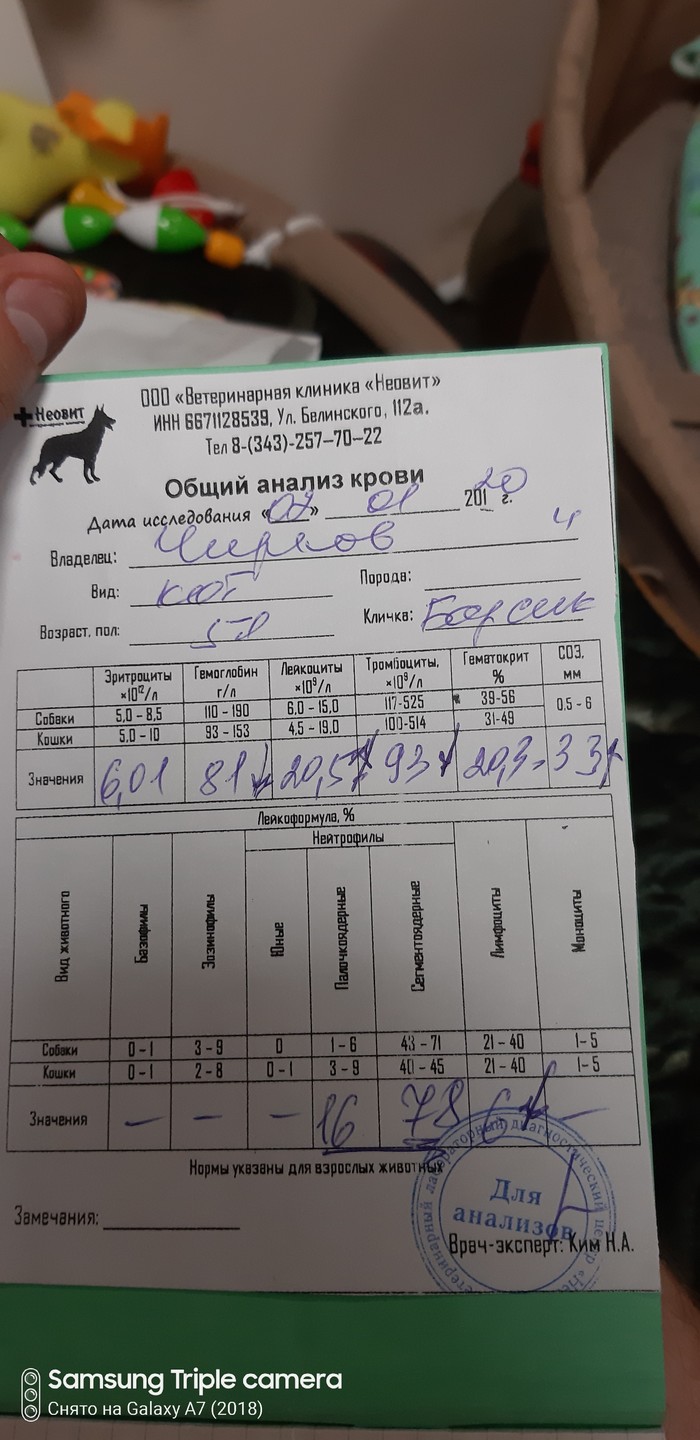 Неовит
ООО «Ветеринарная клиника «Неовит»
ИНН 6671128539, Ул. Белинского, 112а.
Тел 8-(343)-257-70-22
Общий анализ крови
Дата исследования «02» 01 201 20 г.
Владелец: Чирков 4
Вид: кот Порода:
Возраст, пол: Кличка: Барсик
Эритроциты ×10¹²/л Гемоглобин г/л Лейкоциты ×10⁹/л Тромбоциты, ×10⁹/л Гематокрит % СОЭ, мм
Собаки 5,0 - 8,5 110 - 190 6,0 - 15,0 117-525 39-56 0,5 - 6
Кошки 5,0 - 10 93 - 153 4,5 - 19,0 100-514 31-49
Значения 6,01 81↓ 20,5 93 20,3 33
Лейкоформула, %
Нейтрофилы
Вид животного Базофилы Эозинофилы Юные Палочкоядерные Сегментоядерные Лимфоциты Моноциты
Собаки 0 - 1 3 - 9 0 1 - 6 43 - 71 21 - 40 1 - 5
Кошки 0 - 1 2 - 8 0 - 1 3 - 9 40 - 45 21 - 40 1 - 5
Значения — — — 16 78 6 —
Нормы указаны для взрослых животных
Замечания:
Для анализов
Врач-эксперт: Ким Н.А.
Samsung Triple camera
Снято на Galaxy A7 (2018)